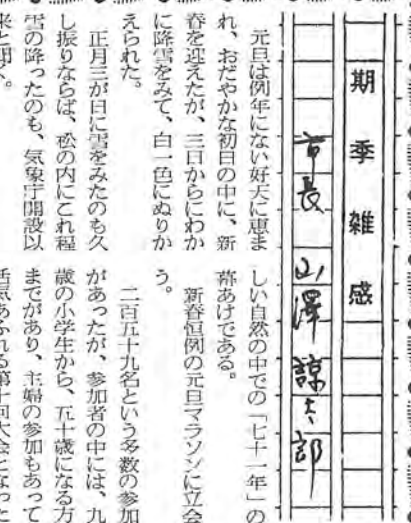 期季雑感
市長 山澤諒太郎
元旦は例年にない好天に恵ま
れ、おだやかな初日の中に、新
春を迎えたが、三日からにわか
に降雪をみて、白一色にぬりか
えられた。
正月三が日に雪をみたのも久
し振りならば、松の内にこれ程
雪の降ったのも、気象庁開設以
来と聞く。
しい自然の中での「七十一年」の
幕あけである。
新春恒例の元旦マラソンに立会
う。
二百五十九名という多数の参加
があったが、参加者の中には、九
歳の小学生から、五十歳になる方
までがあり、主婦の参加もあって
活気あふれる第十回大会となった